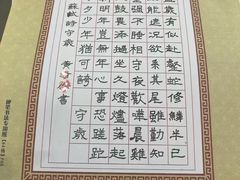 歲有似赴壑蛇修鱗半已
遮況欲繫其尾雖勤知
睡相守夜歡嘩晨雞且勿
鼓畏添撾坐久燈燼落起
明年豈無年心事恐蹉跎
少年猶可誇 守歲
蘇軾詩守歲 黃 書
硬笔书法专用纸